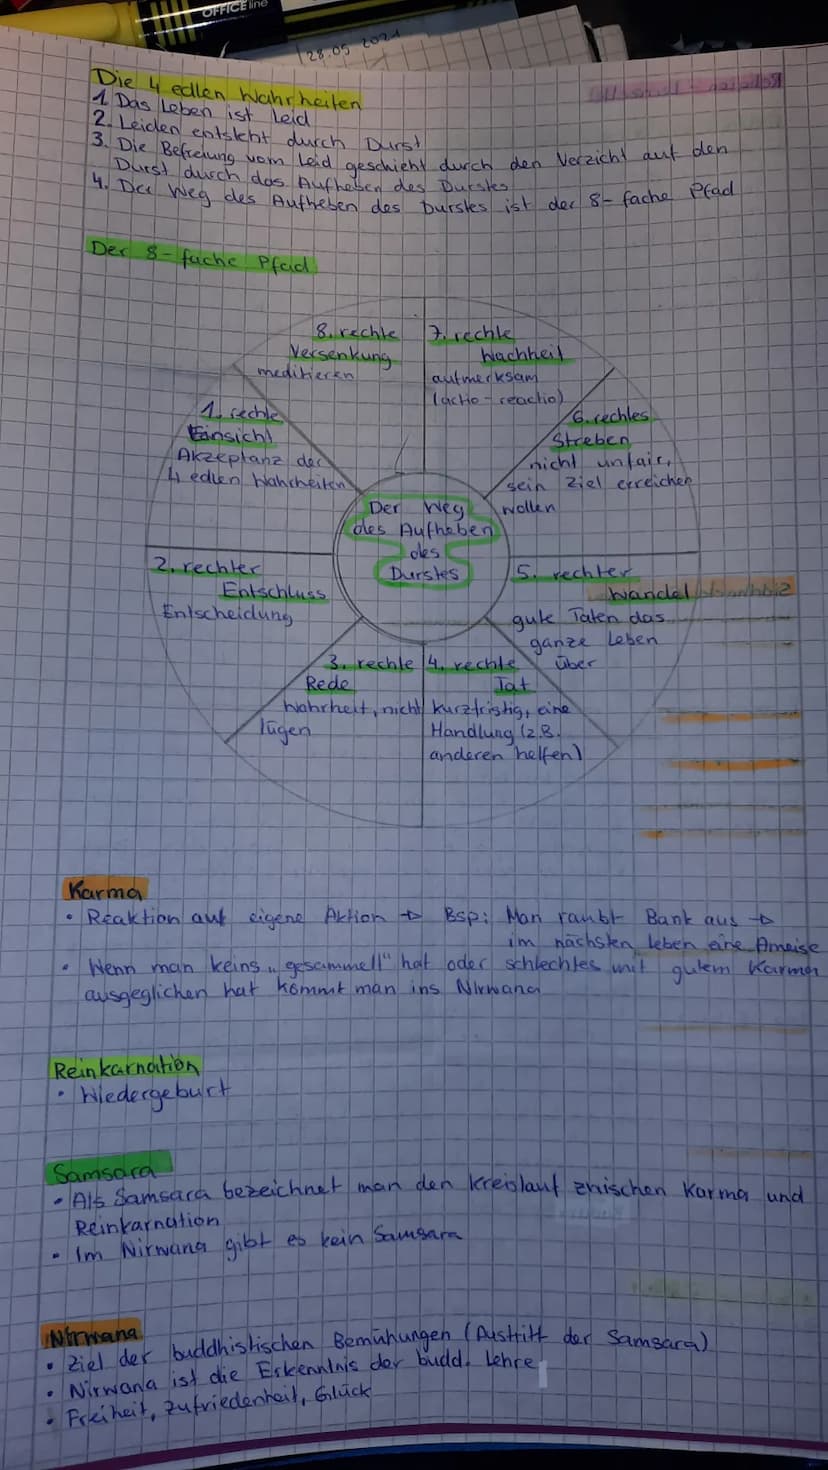 OFFICE line
28.05 2021
Die 4 edlen Wahrheiten
1. Das Leben ist Leid
2. Leiden entsteht durch Durst
3. Die Befreiung vom Leid geschieht durch den Verzicht auf den
Durst durch das Aufheben des Durstes
4. Der Weg des Aufheben des Durstes ist der 8-fache Pfad
Der 8-fache Pfad
8. rechte
Versenkung
meditieren
7. rechte
Wachheit
aufmerksam
(actio-reactio)
1. rechte
Einsicht
Akzeptanz der
4 edlen Wahrheiten
6. rechtes
Streben
nicht unfair,
sein Ziel erreichen
wollen
Der Weg
des Aufheben
des
Durstes
2. rechter
Entschluss
Entscheidung
5. rechter
Wandel
gute Taten das
ganze Leben
über
3. rechte
Rede
Wahrheit, nicht
lügen
4. rechte
Tat
kurzfristig, eine
Handlung (z.B.
anderen helfen)
Karma
• Reaktion auf eigene Aktion → Bsp: Man raubt Bank aus →
im nächsten leben eine Ameise
• Wenn man keins „gesammelt" hat oder schlechtes mit gutem Karma
ausgeglichen hat kommt man ins Nirwana
Reinkarnation
• Wiedergeburt
Samsara
• Als Samsara bezeichnet man den Kreislauf zwischen Karma und
Reinkarnation
• Im Nirwana gibt es kein Samsara
Nirwana
• Ziel der buddhistischen Bemühungen (Austritt der Samsara)
• Nirwana ist die Erkenntnis der budd. Lehre
• Freiheit, Zufriedenheit, Glück